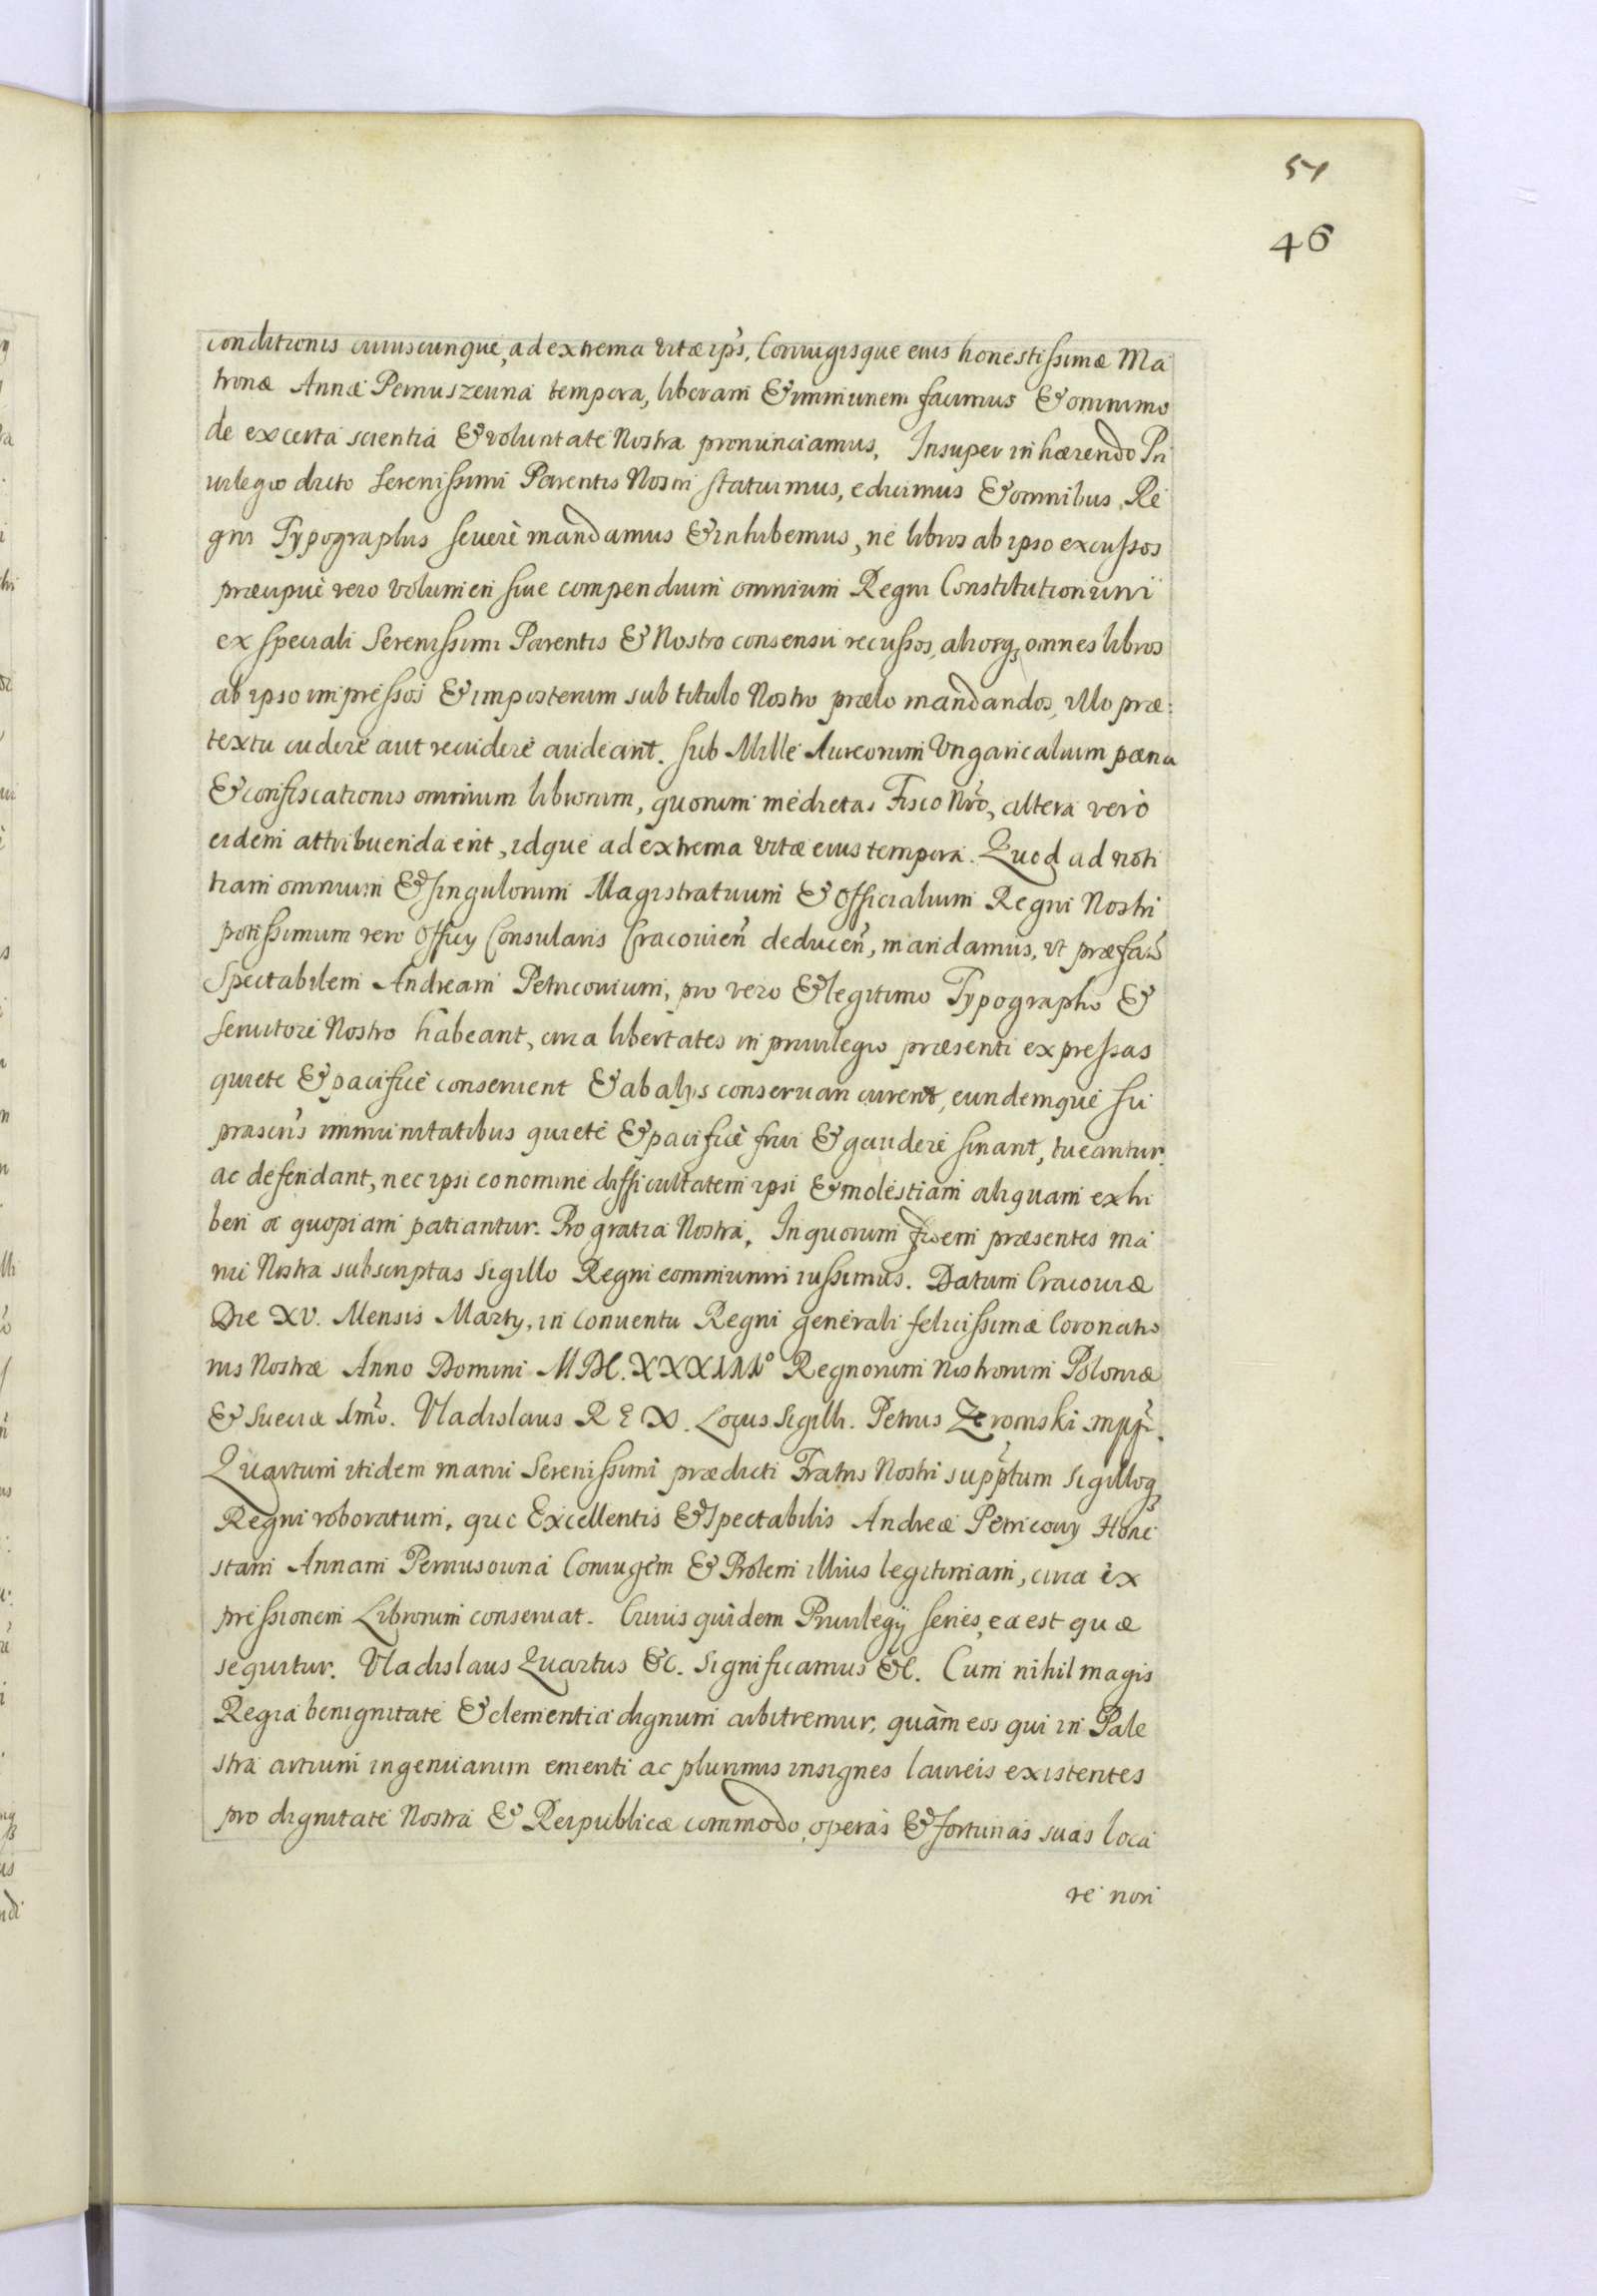 51
46
conditionis cuiuscunque, ad extrema vitæ ips̃, Coniugisque eius honestissimæ Ma
tronæ Annæ Pernuszewna tempora, liberam & immunem facimus & omnimo
de ex certa scientia & voluntate Nostra pronunciamus. Insuper inhærendo Pri
uilegio dicto Serenissimi Parentis Nostri statuimus, edicimus & omnibus Re
gni Typographis seuerè mandamus & inhibemus, ne libros ab ipso excussos
præcipuè vero volumen siue compendium omnium Regni Constitutionum
ex speciali Serenissimi Parentis & Nostro consensu recussos, aliosq, omnes libros
ab ipso impressos & imposterum sub titulo Nostro prælo mandandos, ullo præ:
textu cudere aut recudere audeant. sub Mille Aureorum Vngaricalium pæna
& confiscationis omnium librorum, quorum medietas Fisco Nr̃o, altera verò
eidem attribuenda erit, idque ad extrema vitæ eius tempora. Quod ad noti
tiam omnium & singulorum Magistratuum & Officialium Regni Nostri
potissimum vero Officy Consularis Cracouien̄ deducen̄, mandamus, vt præfatũ
Spectabilem Andream Petricouium, pro vero & legitimo Typographo &
Seruitore Nostro habeant, circa libertates in priuilegio præsenti expressas
quiete & pacificè conseruent & ab alys conseruari curent, eundemque su
prascrĩs immunitatibus quietè & pacificè frui & gaudere sinant, tueantur
ac defendant, nec ipsi eo nomine difficultatem ipsi & molestiam aliquam exhi
beri a quopiam patiantur. Pro gratia Nostra. In quorum fidem præsentes ma
nu Nostra subscriptas sigillo Regni communiri iussimus. Datum Cracouiæ
Die XV. Mensis Marty, in Conuentu Regni generali felicissimæ Coronatio
nis Nostræ Anno Domini MDC.XXXIII° Regnorum Nostrorum Poloniæ
& Sueciæ Imõ. Vladislaus REX. Locus Sigilli. Petrus Zeromski mpp̃.
Quartum itidem manu Serenissimi prædicti Fratris Nostri supp̃tum Sigilloq,
Regni roboratum, quo Excellentis & Spectabilis Andreæ Petricouy Hone
stam Annam Pernusowna Coniugem & Prolem illius legitimam, circa ex
pressionem Librorum conseruat. Cuius quidem Priuilegÿ series, ea est quæ
sequitur. Vladislaus Quartus &c. Significamus &c. Cum nihil magis
Regia benignitate & clementia dignum arbitremur, quàm eos qui in Pale
stra artium ingenuarum emeriti ac plurimis insignes laureis existentes
pro dignitate Nostra & Reipublicæ commodo, operas & fortunas suas loca
re non